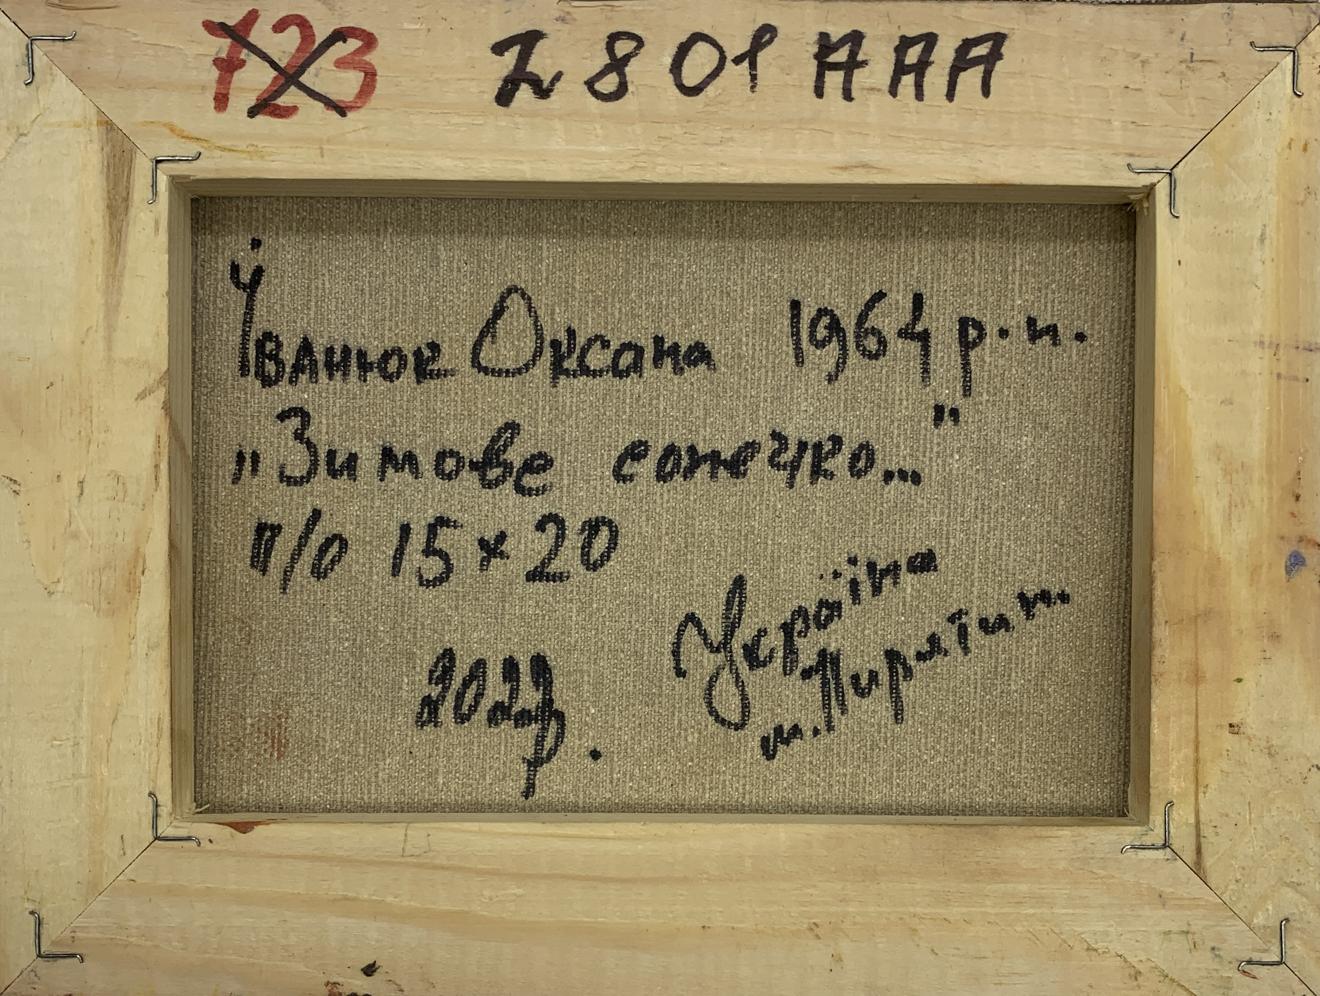 723 2801 AAA
Іванюк Оксана 1964 р.н.
„Зимове сонечко..."
п/о 15×20
Україна
м. Пирятин.
2022р.